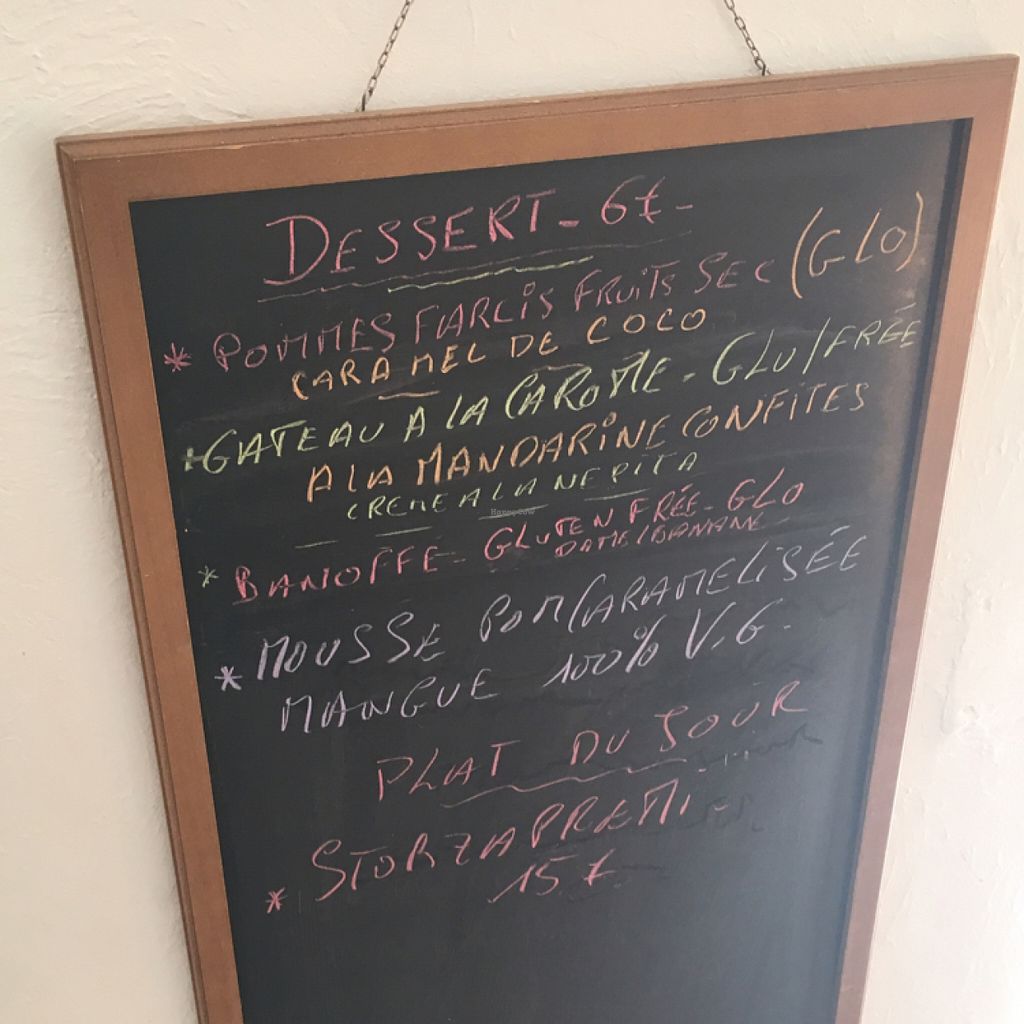 DESSERT - 6€ -
* POMMES FARCIS FRUITS SEC (GLO)
CARAMEL DE COCO
* GATEAU A LA CAROTTE - GLU/FRÉE
A LA MANDARINE CONFITES
CREME A LA NEPITA
* BANOFFE - GLUTEN FRÉE - GLO
DATTE/BANANE
* MOUSSE POM/CARAMELISÉE
MANGUE 100% V.G.
PLAT DU JOUR
* STORZAPRETTI -
15€
HappyCow